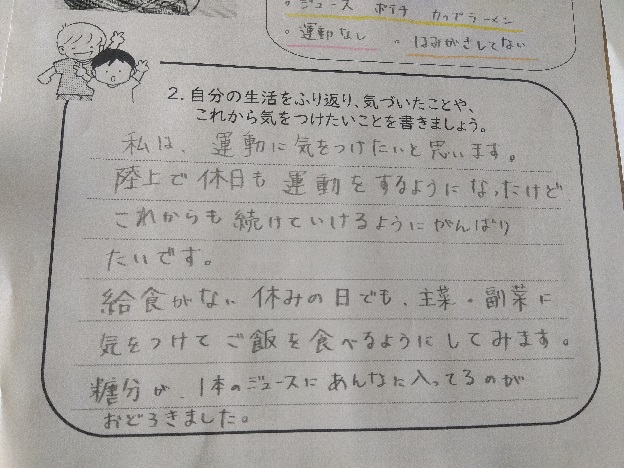 。ジュース おかし カップラーメン
。運動なし 。はみがきしてない
2. 自分の生活をふり返り、気づいたことや、
これから気をつけたいことを書きましょう。
私は、運動に気をつけたいと思います。
陸上で休日も運動をするようになったけど
これからも続けていけるようにがんばり
たいです。
給食がない休みの日でも、主菜・副菜に
気をつけてご飯を食べるようにしてみます。
糖分が、1本のジュースにあんなに入ってるのが
おどろきました。